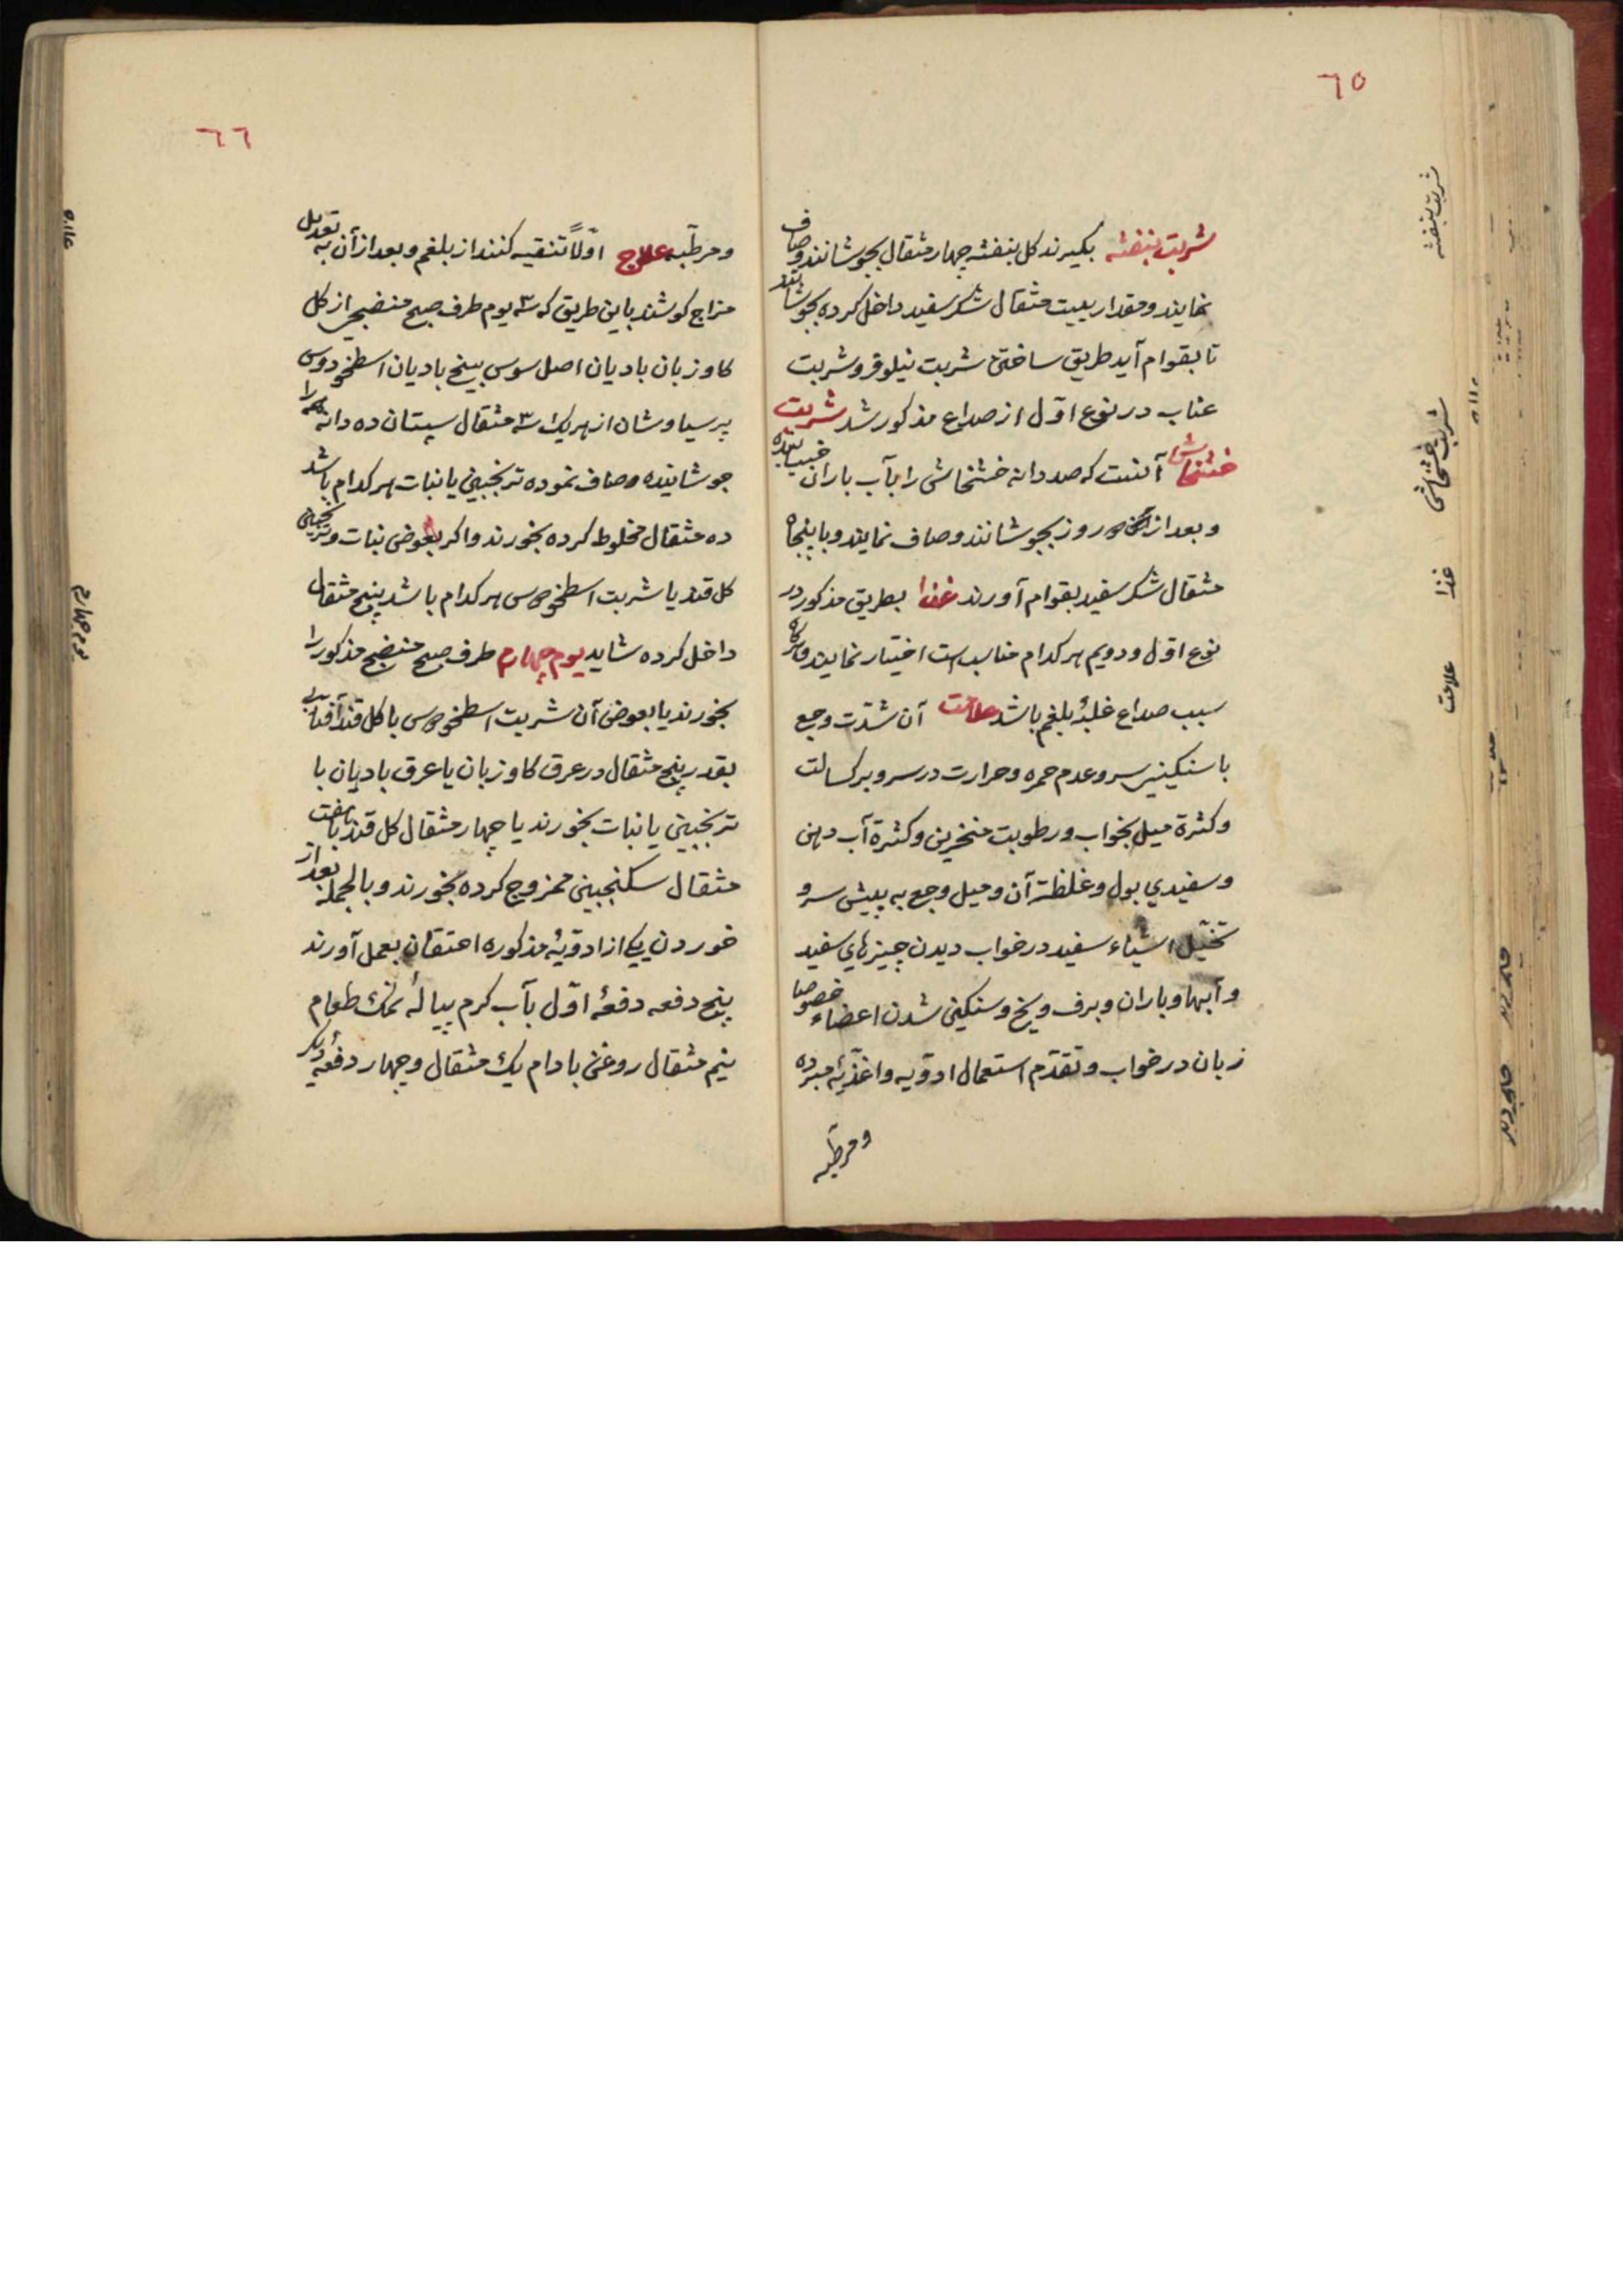 ٦٥
شربت بنفشه بکیرند کل بنفشه چهار مثقال بجوشانند و صاف
نمایند و مقدار بیست مثقال شکر سفید داخل کرده بجوشانند
تا بقوام آید طریق ساختن شربت نیلوفر و شربت
عناب در نوع اوّل از صداع مذکور شد شربت
خشخاش آنست که صد دانه خشخاش را بآب باران خیسانیده
و بعد از روز بجوشانند و صاف نمایند و با پنجاه
مثقال شکر سفید بقوام آورند غذا بطریق مذکور در
نوع اوّل و دویم هر کدام مناسب است اختیار نمایند و اکر
سبب صداع غلبهٔ بلغم باشد علامت آن شدّت وجع
با سنکینی سر و عدم حمره و حرارت در سر و بر کسالت
و کثرة میل بخواب و رطوبت منخرین و کثرة آب دهن
و سفیدی بول و غلظة آن و میل وجع به پیش سر و
تخیّل اشیاء سفید در خواب دیدن چیزهای سفید
و آبها و باران و برف و یخ و سنکین شدن اعضاء خصوصا
زبان در خواب و تقدّم استعمال ادویه و اغذیهٔ مبرده
و مرطّبه
شربت بنفشه
شربت خشخاش
غذا
علامت
٦٦
و مرطّبه علاج اوّلاً تنقیه کنند از بلغم و بعد از آن به تعدیل
مزاج کوشند باین طریق که ۳ یوم طرف صبح منضجی از کل
کاوزبان بادیان اصل سوس بیخ بادیان اسطخودوس
پرسیاوشان از هر یک ۳ مثقال سپستان ده دانه را
جوشانیده و صاف نموده ترنجبین یا نبات هر کدام باشد
ده مثقال مخلوط کرده بخورند و اکر بعوض نبات و ترنجبین
کل قند یا شربت اسطخودوس هر کدام باشد پنج مثقال
داخل کرده شاید یوم چهارم طرف صبح منضج مذکور را
بخورند یا بعوض آن شربت اسطخودوس با کل قند آفتابی
بقدر پنج مثقال در عرق کاوزبان یا عرق بادیان با
ترنجبین یا نبات بخورند یا چهار مثقال کل قند با هفت
مثقال سکنجبین ممزوج کرده بخورند و بالجمله بعد از
خوردن یکی از ادویهٔ مذکوره احتقان بعمل آورند
پنج دفعه دفعهٔ اوّل بآب کرم پیالهٔ نمک طعام
نیم مثقال روغن بادام یک مثقال و چهار دفعهٔ دیکر
علاج
یوم چهارم